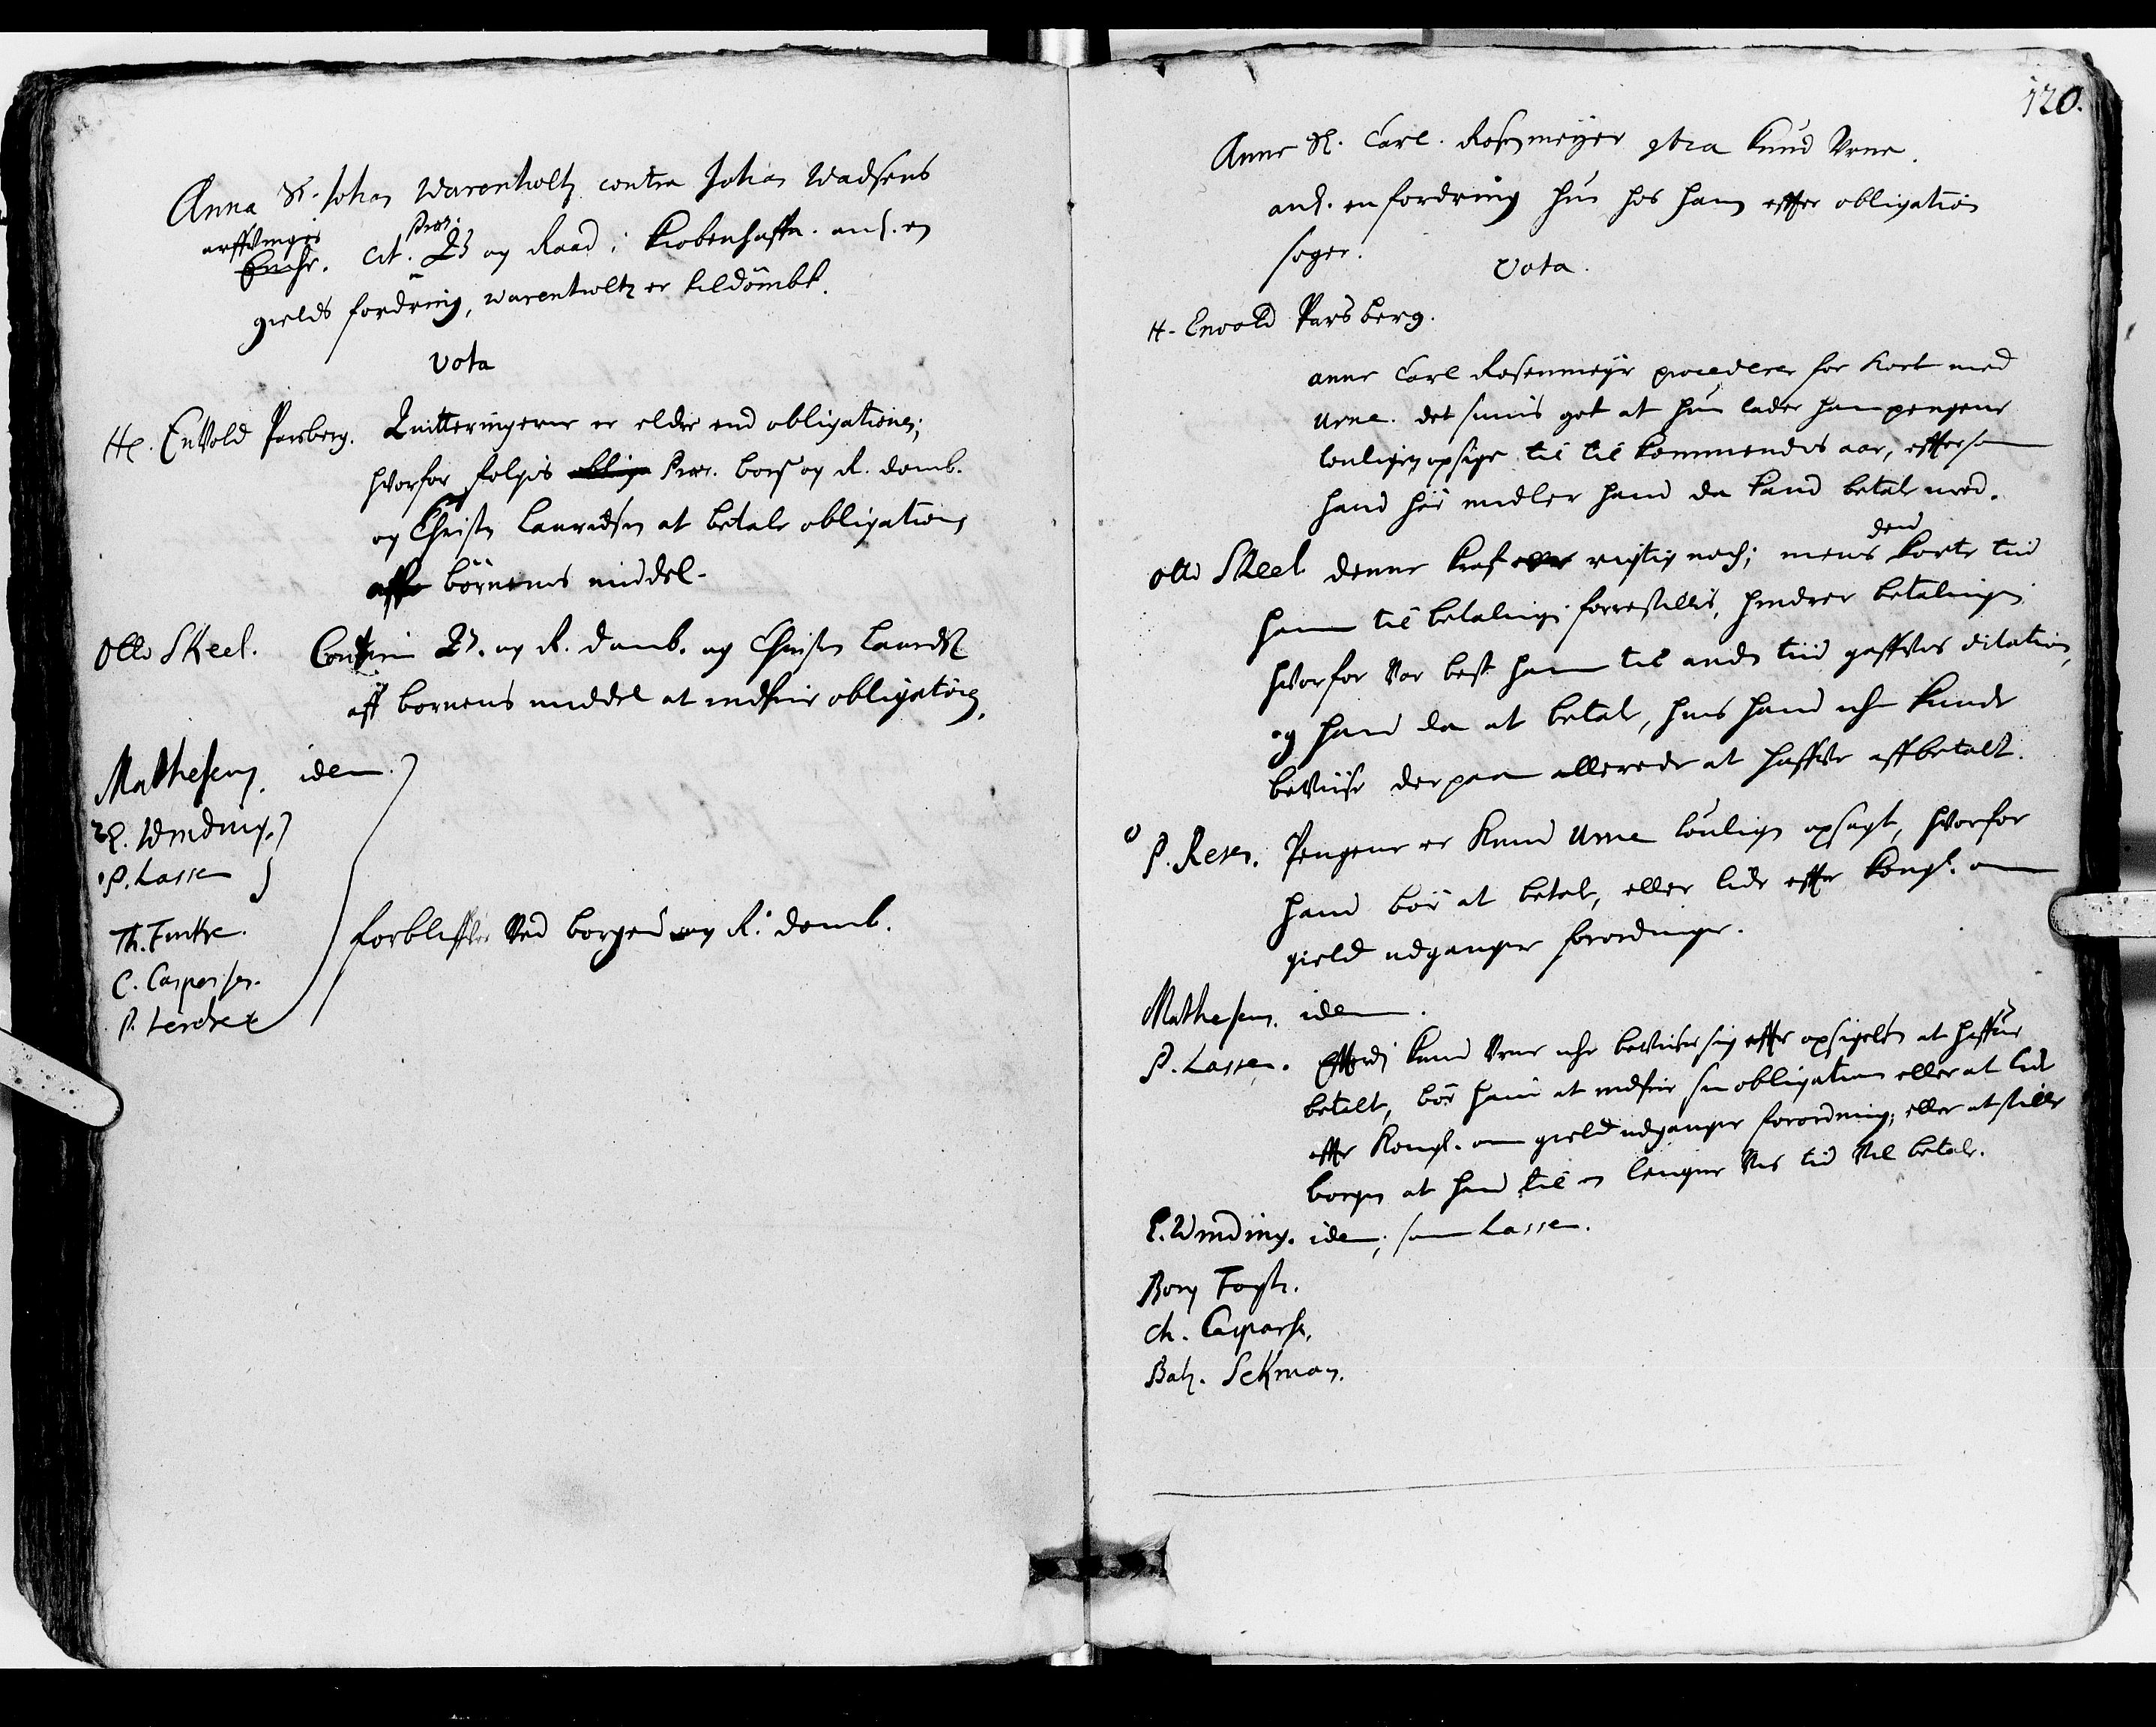 Anna Sl. Johan Warenholtz contra Johan Wadsens
arffvinger
Enche. Cit. Præs: B. og Raad i Kiobenhaffn. anl. en
gields fordring, Warenholtz er tildömbt.
vota
Hr. Envold Parsberg. Quitteringerne er eldre end obligationen;
hvorfor folgis Præs. borg. og R. domb.
og Christen Lauridsen at betale obligationen
aff börnenes middel.
Otto Skeel. Confirm B. og R. domb. og Christen Lauridsen
aff bornens middel at indfrie obligationen.
Mathesen. idem.
2 E. Winding.
1 P. Lassen
Th. Fincke.
forbliffver Ved borgem. og R. domb.
C. Caspersen.
P. Lerche
120.
Anne Sl. Carl. Rosenmeyer contra Knud Vrne.
anl. en fordring hun hos ham effter obligation
soger.
Vota.
H. Envold Parsberg.
anne Carl Rosenmeyr procederer for kort med
Urne. det siunis got at hun lader ham pengene
louligen opsige til til kommendes aar, effterson
hand har midler hand da kand betale med.
Otto Skeel denne kraf rigtig noch; mens den korte tiid
ham til betaling forrestillis, hindrer betalingen
hvorfor Var best ham til anden tiid gaffves dilation,
og hand da at betale, hvis hand iche kunde
beviise derpaa allerede at haffve affbetalt.
P. Resen. Pengene er Knud Urne louligen opsagt, hvorfor
hand bör at betale, eller lide effter kongl. om
gield udgangne forordninger.
Mathesen. idem.
P. Lassen. Efftterdi Knud Vrne iche beviser sig effter opsigelsen at haffve
betalt, bör hand at indfrie sin obligation eller at lide
effter Kongl. om gield udgangne forordning, eller at stille
borgen at hand til en lengere Vis tid Vil betale.
E. Winding. idem, som Lassen.
Borg Fogth.
Ch. Caspars.
Balz. Sekman.